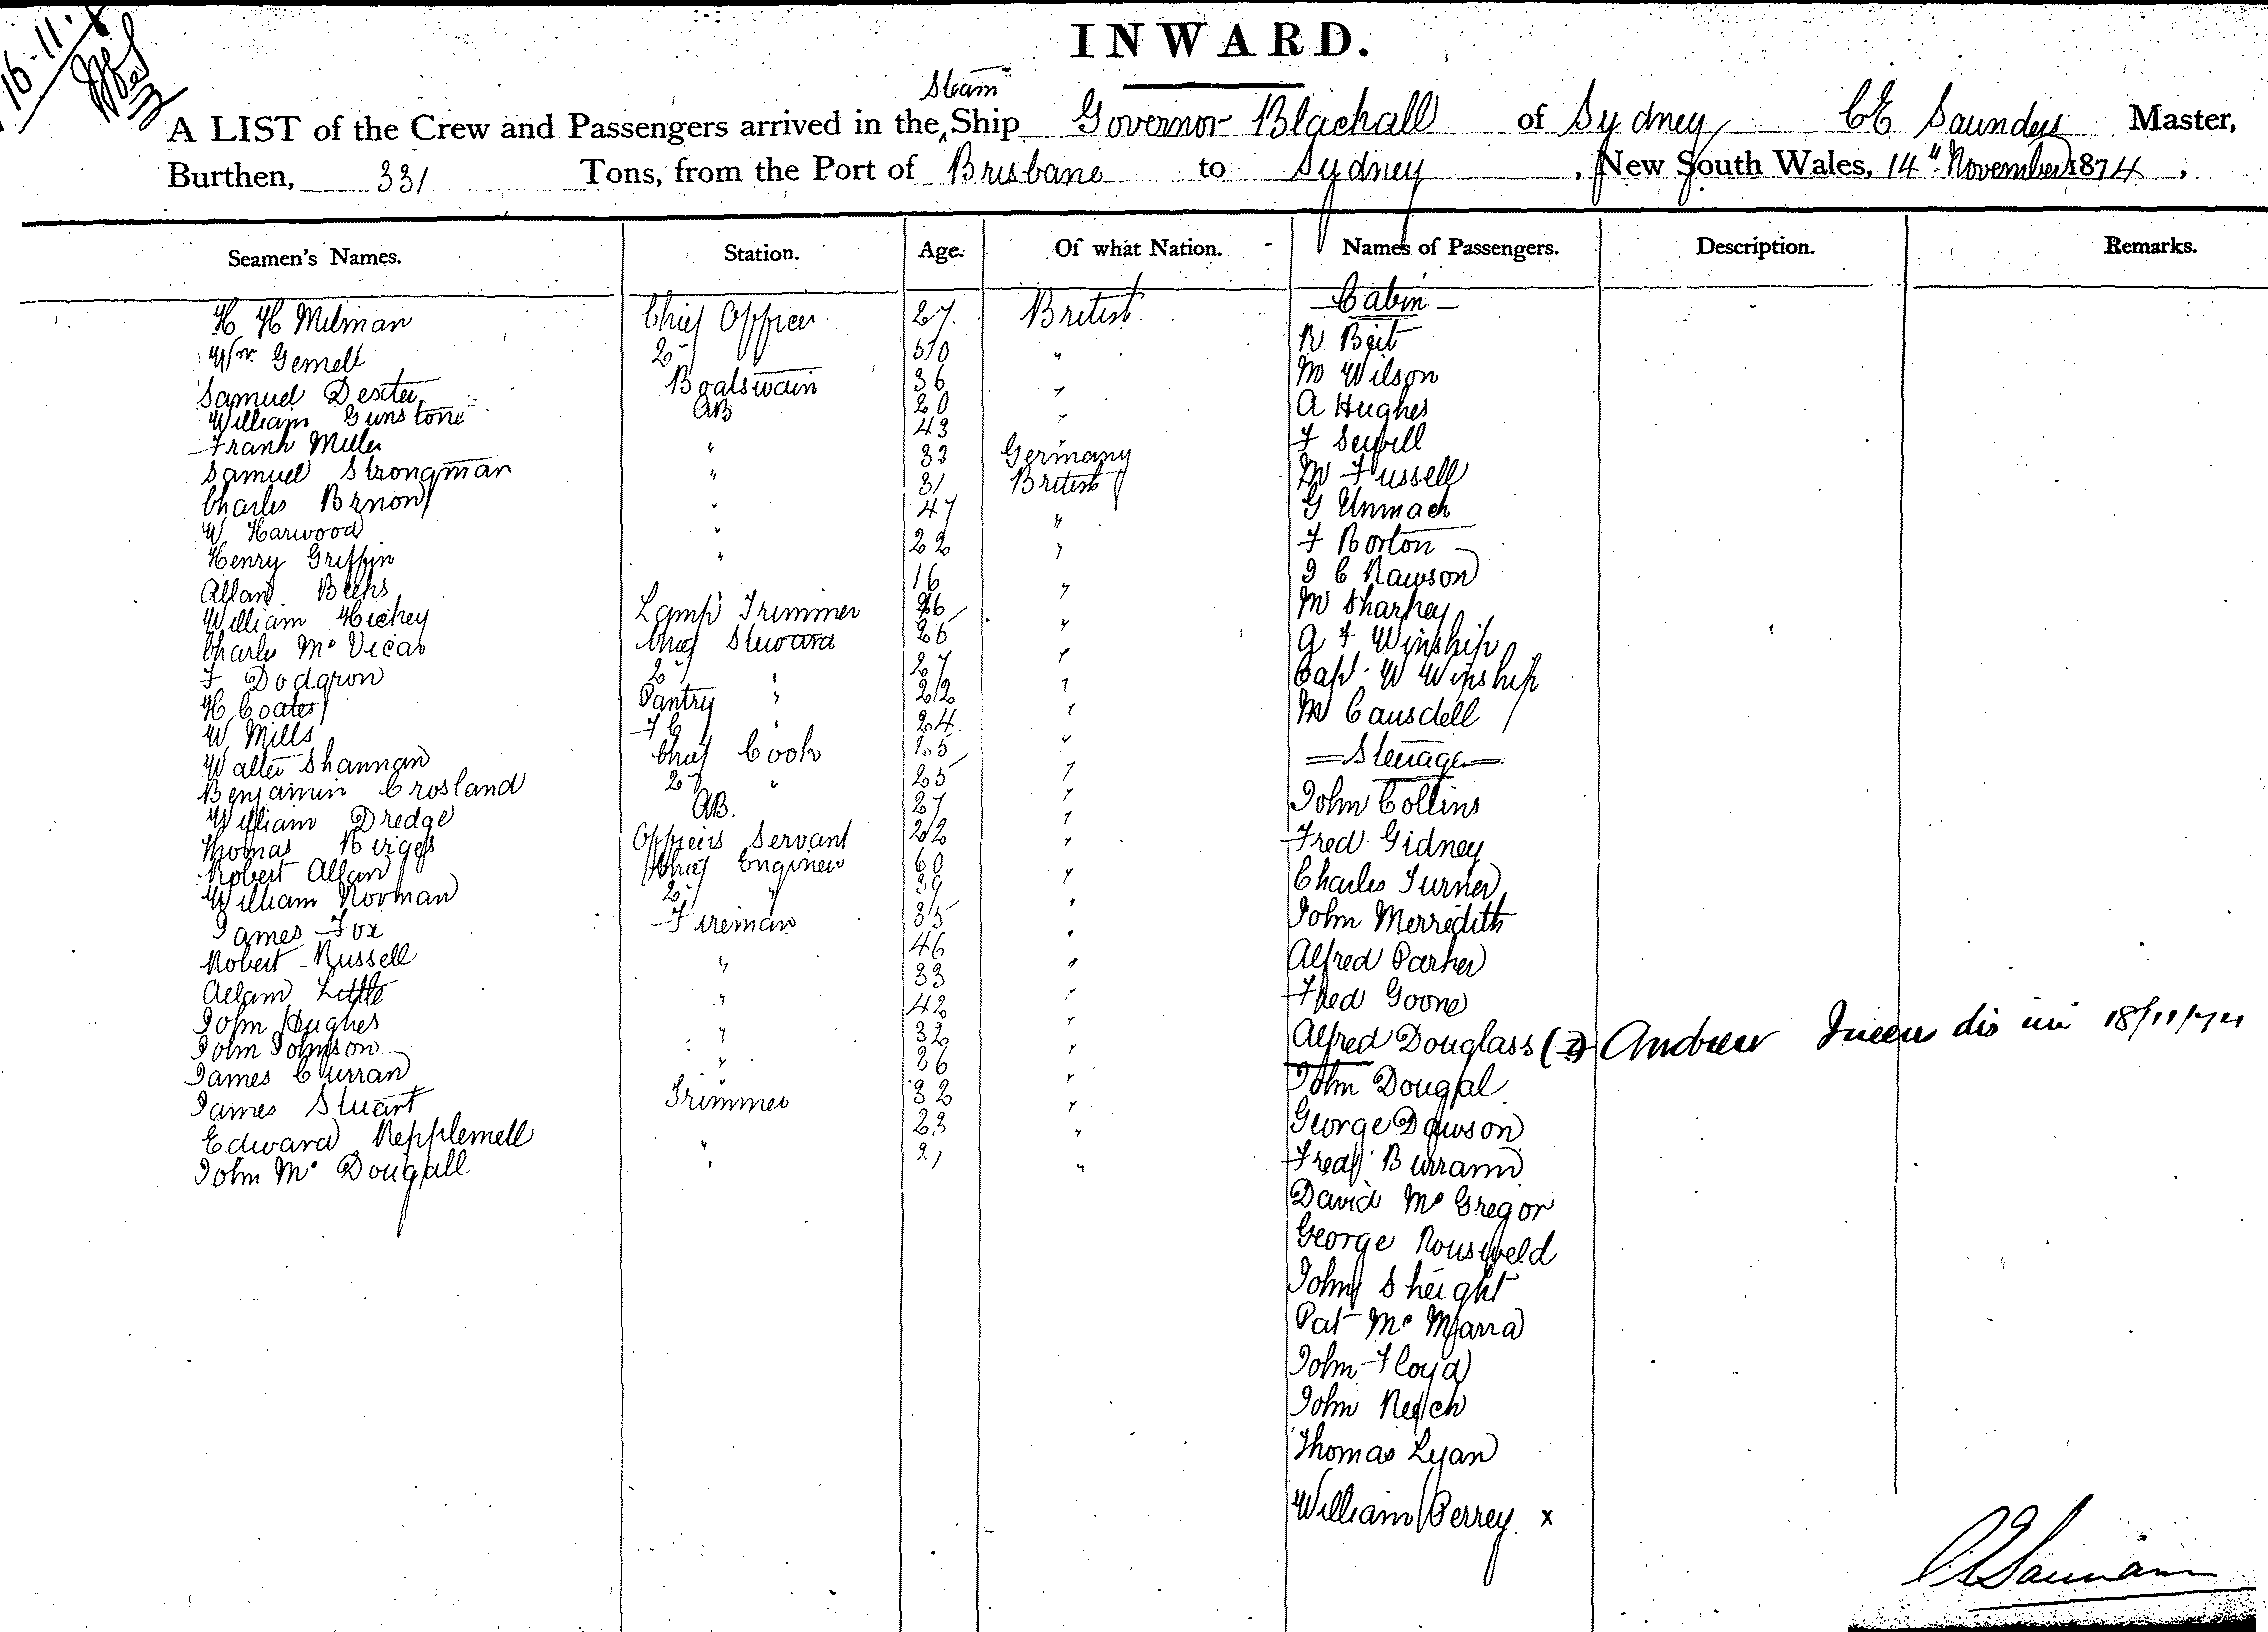 16-11-
INWARD.
Steam
A LIST of the Crew and Passengers arrived in the Ship Governor Blackall of Sydney CE Saunders Master,
Burthen, 331 Tons, from the Port of Brisbane to Sydney, New South Wales, 14" November 1874.
Seamen's Names. Station. Age. Of what Nation. Names of Passengers. Description. Remarks.
Cabin
H H Milman Chief Officer 27 British
R Beit
Wm Gemell 2d 50 "
M Wilson
Samuel Dexter Boatswain 36 "
William Gunstone AB 20 "
A Hughes
Frank Miller " 43 Germany
F Sewell
Samuel Strongman " 33 British
M Fussell
Charles " 31
G Unmack
W Harwood " 47 "
F Borton
Henry Griffin " 22 "
C Rawson
Allan 16 "
M Sharkey
William Hickey Lamp Trimmer 26 "
Charles Mc Vicar Chief Steward 26 "
A F Winship
F Dodgson 2d " 27 "
Capt W Winship
H Coates Pantry " 22 "
M Causdell
W Mills F C " 24 "
Walter Shannan Chief Cook "
Steerage
Benjamin Crosland 2d " 25 "
John Collins
William Dredge AB. 27 "
Thomas Officers Servant 22 "
Fred Gidney
Robert Allan Chief Engineer 60 "
Charles Turner
William Norman 2d " 39 "
James Fox Fireman 35 "
John Merredith
Robert Russell " 46 "
Alfred Parker
Allam Little " 33 "
Fred Goone
John Hughes " 42 "
Alfred Douglass Andrew 18/11/74
John Johnson " 32 "
James Curran " 36 "
John Dougal
James Stuart Trimmer 32 "
George Dawson
Edward " 23 "
Fred Burrann
John Mc Dougall " 21 "
David Mc Gregor
George
John Sheight
Pat Mc Marra
John Floyd
John
Thomas Lyan
William Perrey x